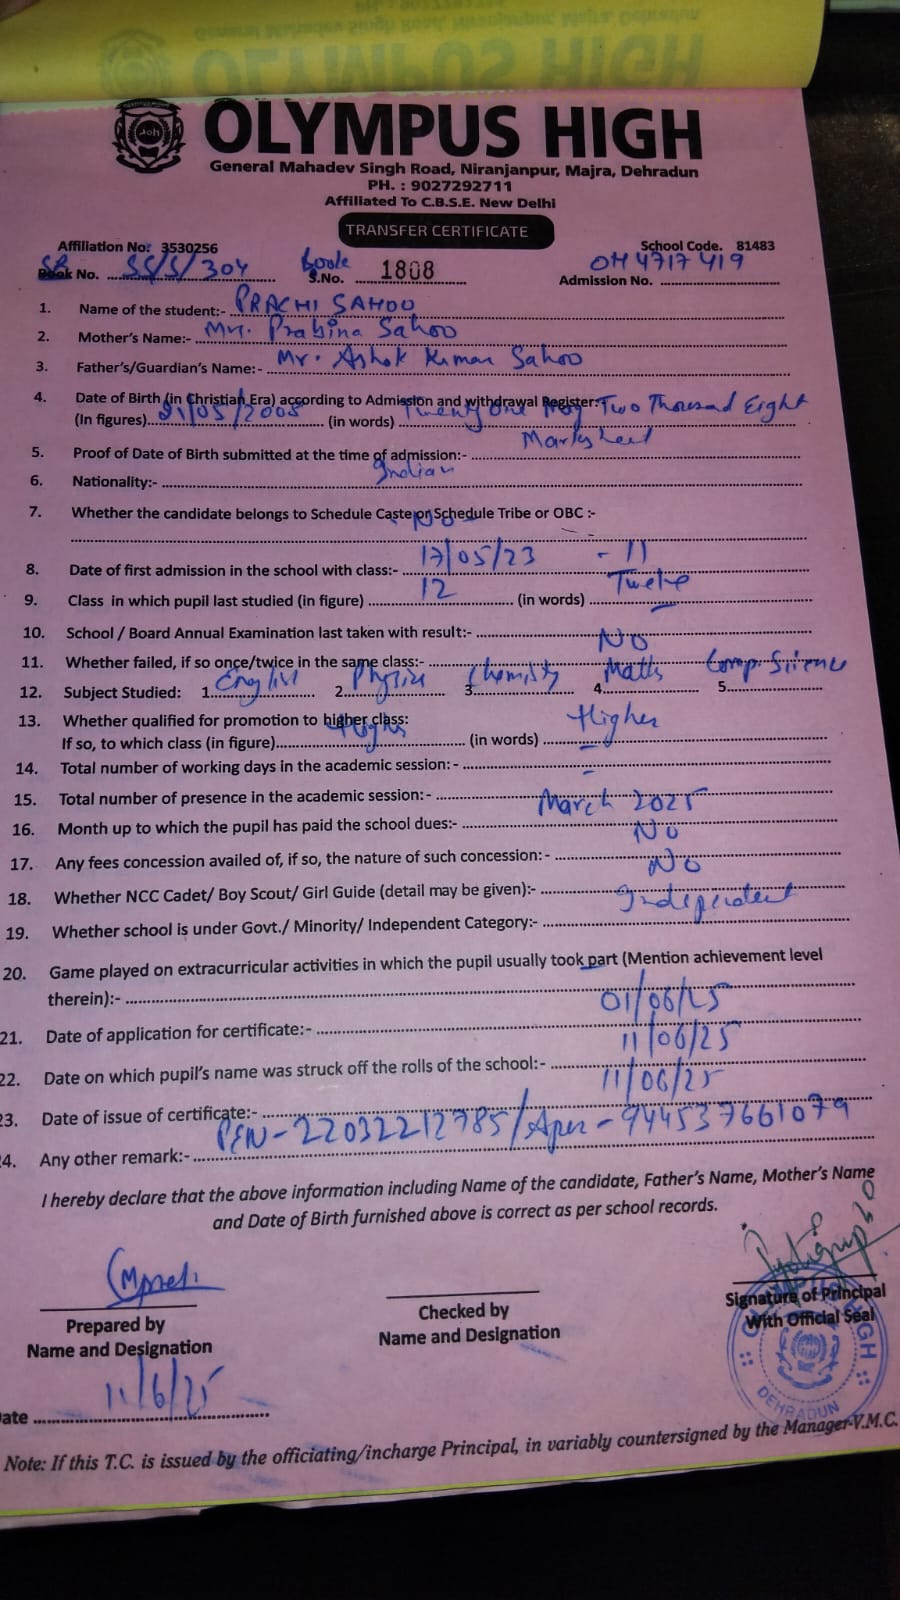 OLYMPUS HIGH
General Mahadev Singh Road, Niranjanpur, Majra, Dehradun
PH. : 9027292711
Affiliated To C.B.S.E. New Delhi
TRANSFER CERTIFICATE
Affiliation No: 3530256 School Code. 81483
SR Book No. SS/S/304 Book S.No. 1808 Admission No. OH4717419
1. Name of the student:- PRACHI SAHOO
2. Mother's Name:- Mrs. Prabina Sahoo
3. Father's/Guardian's Name:- Mr. Ashok Kumar Sahoo
4. Date of Birth (in Christian Era) according to Admission and withdrawal Register:-
(In figures) 21/05/2008 (in words) Twenty One May Two Thousand Eight
5. Proof of Date of Birth submitted at the time of admission:- Marksheet
6. Nationality:- Indian
7. Whether the candidate belongs to Schedule Caste or Schedule Tribe or OBC :-
- No -
8. Date of first admission in the school with class:- 17/05/23 - 11
9. Class in which pupil last studied (in figure) 12 (in words) Twelve
10. School / Board Annual Examination last taken with result:- -
11. Whether failed, if so once/twice in the same class:- No
12. Subject Studied: 1. English 2. Physics 3. Chemisty 4. Maths 5. Comp. Science
13. Whether qualified for promotion to higher class:
If so, to which class (in figure) Higher (in words) Higher
14. Total number of working days in the academic session: - -
15. Total number of presence in the academic session: - -
16. Month up to which the pupil has paid the school dues:- March 2025
17. Any fees concession availed of, if so, the nature of such concession: - No
18. Whether NCC Cadet/ Boy Scout/ Girl Guide (detail may be given):- No
19. Whether school is under Govt./ Minority/ Independent Category:- Independent
20. Game played on extracurricular activities in which the pupil usually took part (Mention achievement level
therein):- -
21. Date of application for certificate:- 01/06/25
22. Date on which pupil's name was struck off the rolls of the school:- 11/06/25
23. Date of issue of certificate:- 11/06/25
24. Any other remark:- PEN-22032212785/Apar-944537661079
I hereby declare that the above information including Name of the candidate, Father's Name, Mother's Name
and Date of Birth furnished above is correct as per school records.
Prepared by
Name and Designation
Checked by
Name and Designation
Signature of Principal
With Official Seal
DEHRADUN
Date 11/6/25
Note: If this T.C. is issued by the officiating/incharge Principal, in variably countersigned by the Manager-V.M.C.